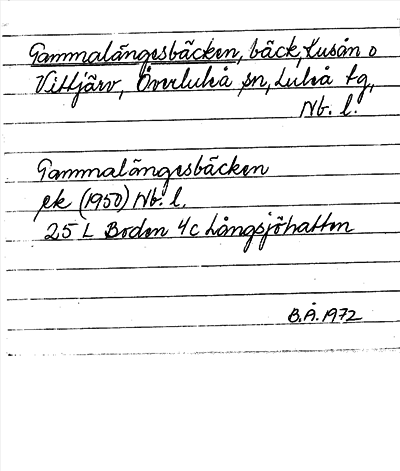 Gammalängesbäcken, bäck, Lusån o
Vittjärv, Överluleå sn, Luleå tg,
Nb. l.
Gammalängesbäcken
ek (1950) Nb. l.
25 L Boden 4c Långsjöhatten
B.Å. 1972